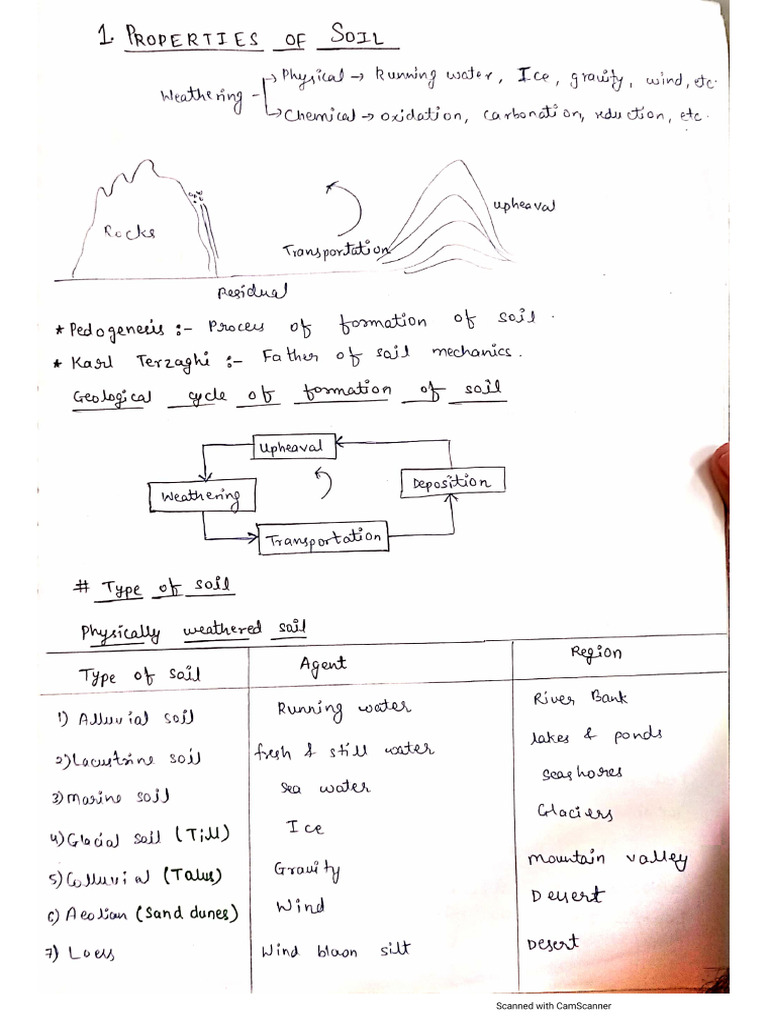 1. PROPERTIES OF SOIL
Weathering
Physical → Running water, Ice, gravity, wind, etc
Chemical → oxidation, carbonation, reduction, etc.
Rocks
Transportation
Upheaval
Residual
* Pedogenesis :- Process of formation of soil.
* Karl Terzaghi :- Father of soil mechanics.
Geological cycle of formation of soil
Upheaval
Weathering
Deposition
Transportation
# Type of soil
Physically weathered soil
Type of soil Agent Region
1) Alluvial soil Running water River Bank
2) Lacustrine soil fresh & still water lakes & ponds
3) Marine soil Sea water Seashores
4) Glacial soil (Till) Ice Glaciers
5) Colluvial (Talus) Gravity Mountain valley
6) Aeolian (Sand dunes) Wind Desert
7) Loess Wind blown silt Desert
Scanned with CamScanner